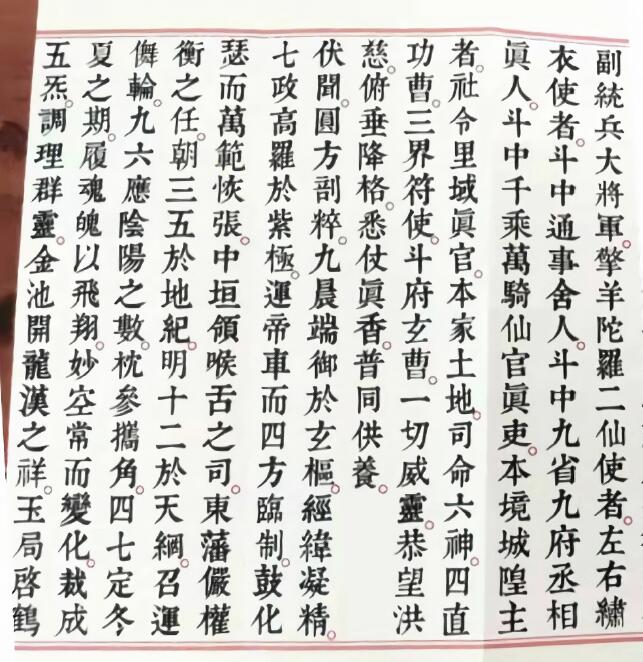 副統兵大將軍。擎羊陀羅二仙使者。左右繡
衣使者。斗中通事舍人。斗中九省九府丞相
眞人。斗中千乘萬騎仙官眞吏。本境城隍主
者。社令里域眞官。本家土地。司命六神。四直
功曹。三界符使。斗府玄曹。一切威靈。恭望洪
慈。俯垂降格。悉仗眞香。普同供養。
伏聞。圓方剖粹。九晨端御於玄樞。經緯凝精。
七政高羅於紫極。運帝車而四方臨制。鼓化
瑟而萬範恢張。中垣領喉舌之司。東藩儼權
衡之任。朝三五於地紀。明十二於天網。召運
儛輪。九六應陰陽之數。枕參攜角。四七定冬
夏之期。履魂魄以飛翔。妙空常而變化。裁成
五炁。調理群靈。金池開龍漢之祥。玉局啓鶴